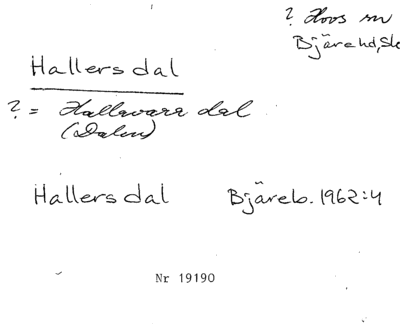 ? Hoos sn
Bjäre hd, Sk
Hallersdal
? = Hallavara dal
(Dalen)
Hallersdal Bjäreb. 1962:4
Nr 19190